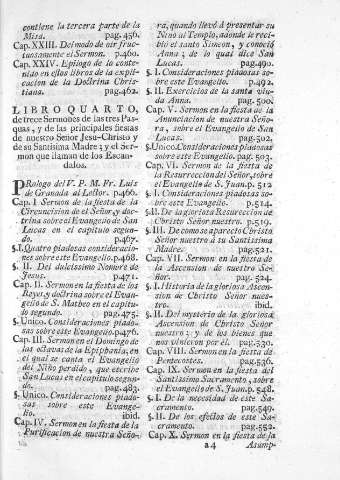 contiene la tercera parte de la
Misa. pag.456.
Cap. XXIII. Del modo de oir fruc-
tuosamente el Sermon. p.460.
Cap. XXIV. Epilogo de lo conte-
nido en estos libros de la expli-
cacion de la Doctrina Chris-
tiana. pag.462.
LIBRO QUARTO,
de trece Sermones de las tres Pas-
quas, y de las principales fiestas
de nuestro Señor Jesu-Christo y
de su Santisima Madre; y el Ser-
mon que llaman de los Escan-
dalos.
PRologo del V. P. M. Fr. Luis
de Granada al Lector. p.466.
Cap. I Sermon de la fiesta de la
Circuncision de el Señor, y doc-
trina sobre el Evangelio de San
Lucas en el capitulo segun-
do. p.467.
§.I. Quatro piadosas consideracio-
nes sobre este Evangelio. p.468.
§. II. Del dulcissimo Nombre de
Jesus. p.471.
Cap. II. Sermon en la fiesta de los
Reyes, y doctrina sobre el Evan-
gelio de S. Matheo en el capitu-
lo segundo. pag.475.
§. Unico. Consideraciones piado-
sas sobre este Evangelio. p.476.
Cap. III. Sermon en el Domingo de
las octavas de la Epiphania, en
el qual se canta el Evangelio
del Niño perdido, que escribe
San Lucas en el capitulo segun-
do. pag.483.
§. Unico. Consideraciones piado-
sas sobre este Evange-
lio. ibid.
Cap. IV. Sermon en la fiesta de la
Purificacion de nuestra Seño-
ra, quando llevó á presentar su
Niño al Templo, adonde le reci-
bió el santo Simeon, y conoció
Anna; de lo qual dice San
Lucas. pag.490.
§. I. Consideraciones piadosas so-
bre este Evangelio. p.492.
§. II. Exercicios de la santa viu-
da Anna. pag.500.
Cap. V. Sermon en la fiesta de la
Anunciacion de nuestra Seño-
ra, sobre el Evangelio de San
Lucas.
§.Unico. Consideraciones piadosas
sobre este Evangelio. pag. 503.
Cap. VI. Sermon de la fiesta de
la Resurreccion del Señor, sobre
el Evangelio de S. Juan. p. 512
§. I. Consideraciones piadosas so-
bre este Evangelio. p.514.
§.II. De gloriosa Resurreccion de
Christo Señor nuestro. p.519.
§.III. De como se apareció Christo
Señor nuestro á su Santissima
Madre. pag.521.
Cap. VII. Sermon en la fiesta de
la Ascension de nuestro Se-
ñor. pag. 524.
§.I. Historia de la gloriosa Ascen-
sion de Christo Señor nues-
tro. ibid.
§. II. Del mysterio de la gloriosa
Ascension de Christo Señor
nuestro; y de los bienes que
nos vinieron por él. pag.530.
Cap. VIII. Sermon en la fiesta de
Pentecostes. pag.536.
Cap. IX. Sermon en la fiesta del
Santissimo Sacramento, sobre
el Evangelio de S. Juan. p.548.
§. I. De la necesidad de este Sa-
cramento. pag.549.
§. II. De los efectos de este Sa-
cramento. pag.552.
Cap. X. Sermon en la fiesta de la
a 4 Asump-